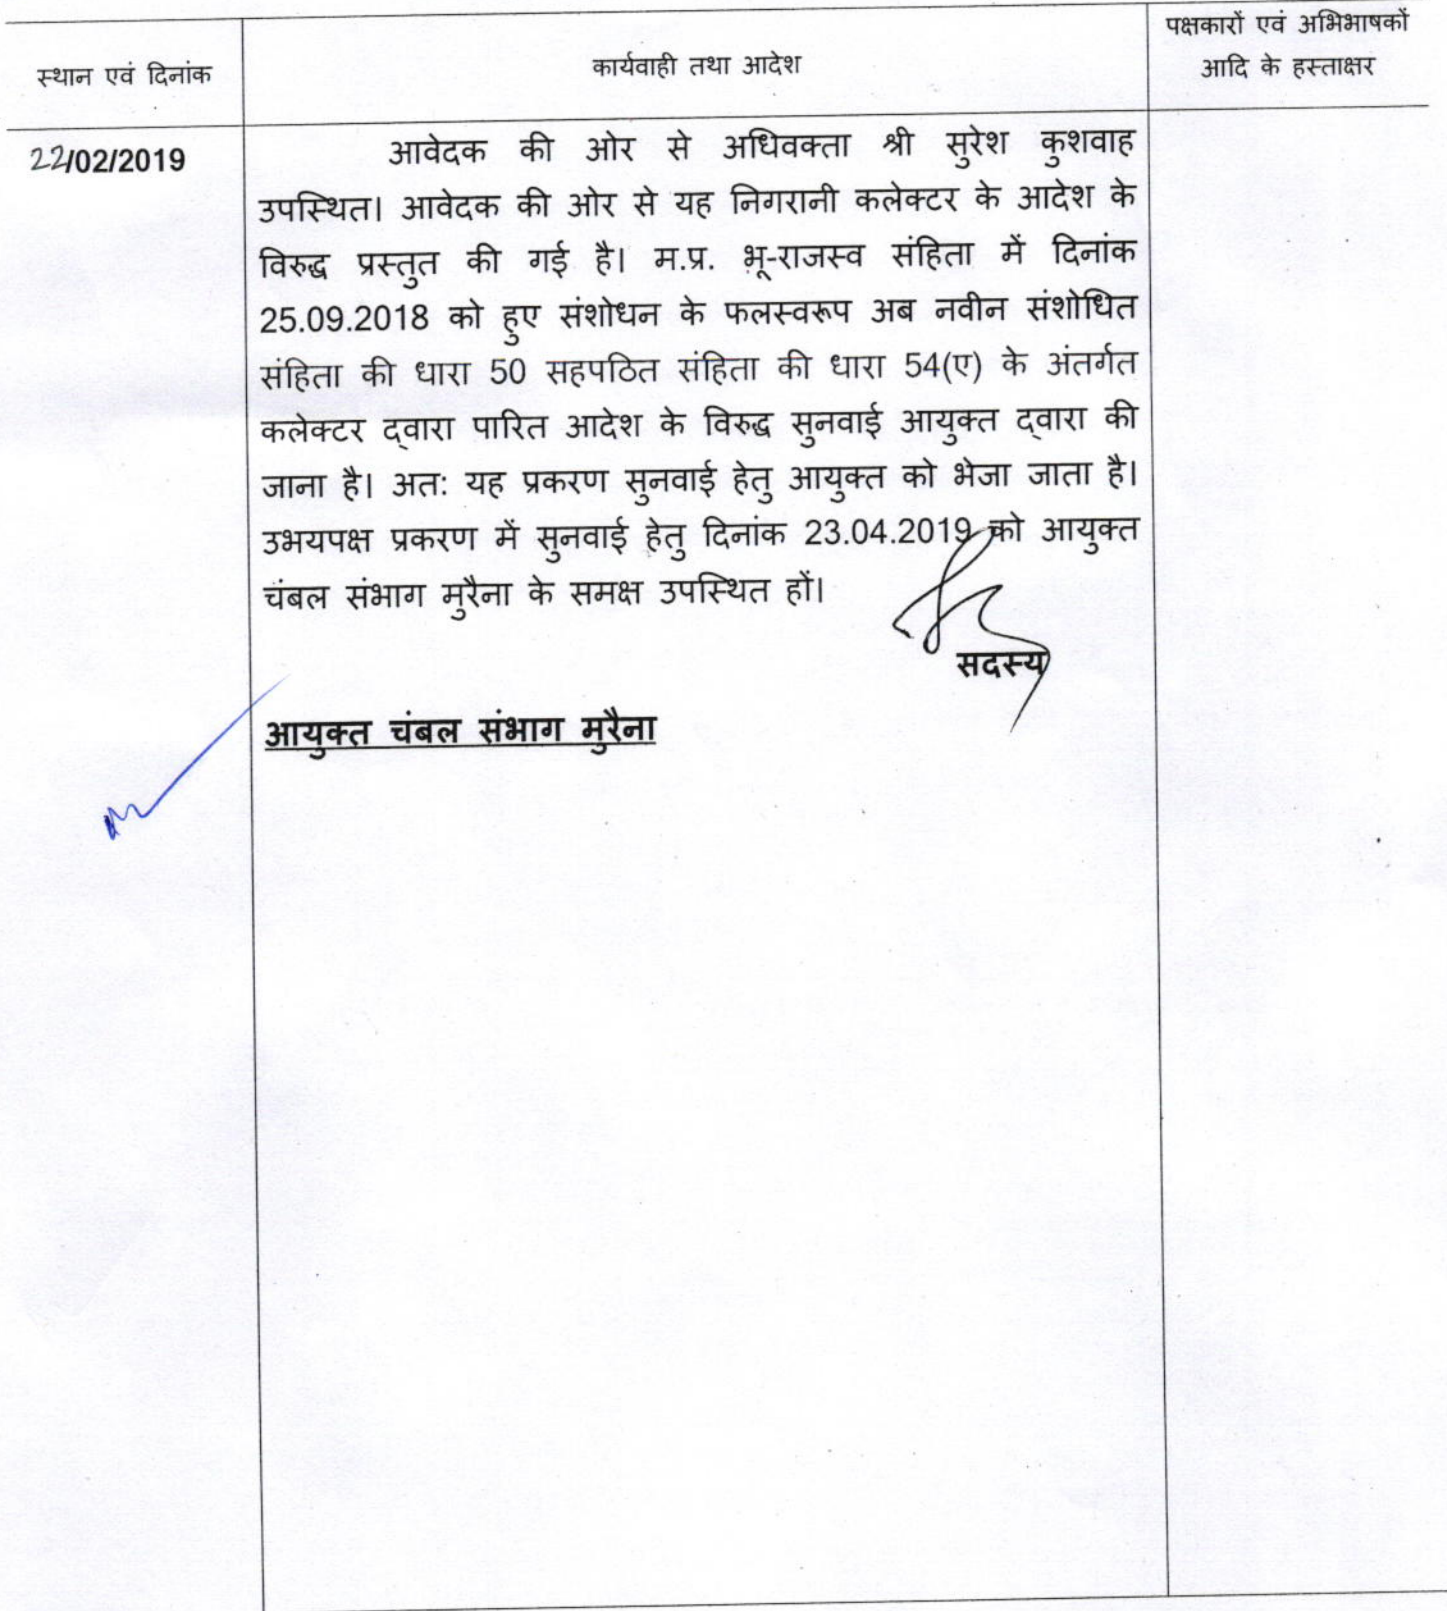 स्थान एवं दिनांक
कार्यवाही तथा आदेश
पक्षकारों एवं अभिभाषकों
आदि के हस्ताक्षर
22/02/2019
आवेदक की ओर से अधिवक्ता श्री सुरेश कुशवाह
उपस्थित। आवेदक की ओर से यह निगरानी कलेक्टर के आदेश के
विरुद्ध प्रस्तुत की गई है। म.प्र. भू-राजस्व संहिता में दिनांक
25.09.2018 को हुए संशोधन के फलस्वरूप अब नवीन संशोधित
संहिता की धारा 50 सहपठित संहिता की धारा 54(ए) के अंतर्गत
कलेक्टर द्वारा पारित आदेश के विरुद्ध सुनवाई आयुक्त द्वारा की
जाना है। अत: यह प्रकरण सुनवाई हेतु आयुक्त को भेजा जाता है।
उभयपक्ष प्रकरण में सुनवाई हेतु दिनांक 23.04.2019 को आयुक्त
चंबल संभाग मुरैना के समक्ष उपस्थित हों।
सदस्य
आयुक्त चंबल संभाग मुरैना